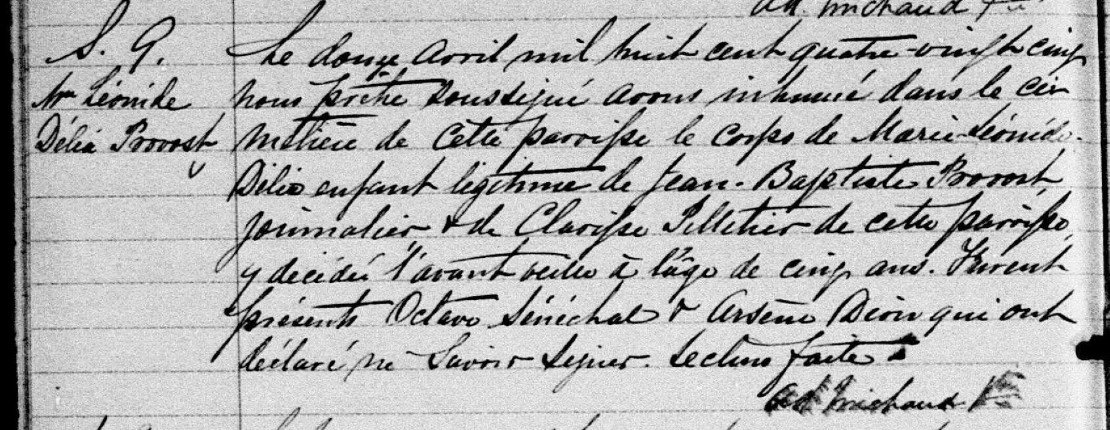 ad. Michaud Ptre
S. 9.
Mie Léonide
Délia Provost
Le douze avril mil huit cent quatre-vingt cinq
nous prêtre soussigné avons inhumé dans le cim
metière de cette parroisse le corps de Marie-Léonide-
Délia enfant légitime de Jean-Baptiste Provost,
journalier & de Clarisse Pelletier de cette parroisse,
y décédée l'avant veille à l'âge de cinq ans. Furent
présents Octave Sénéchal & Arsène Dion qui ont
déclaré ne savoir signer. Lecture faite
ad Michaud Ptre